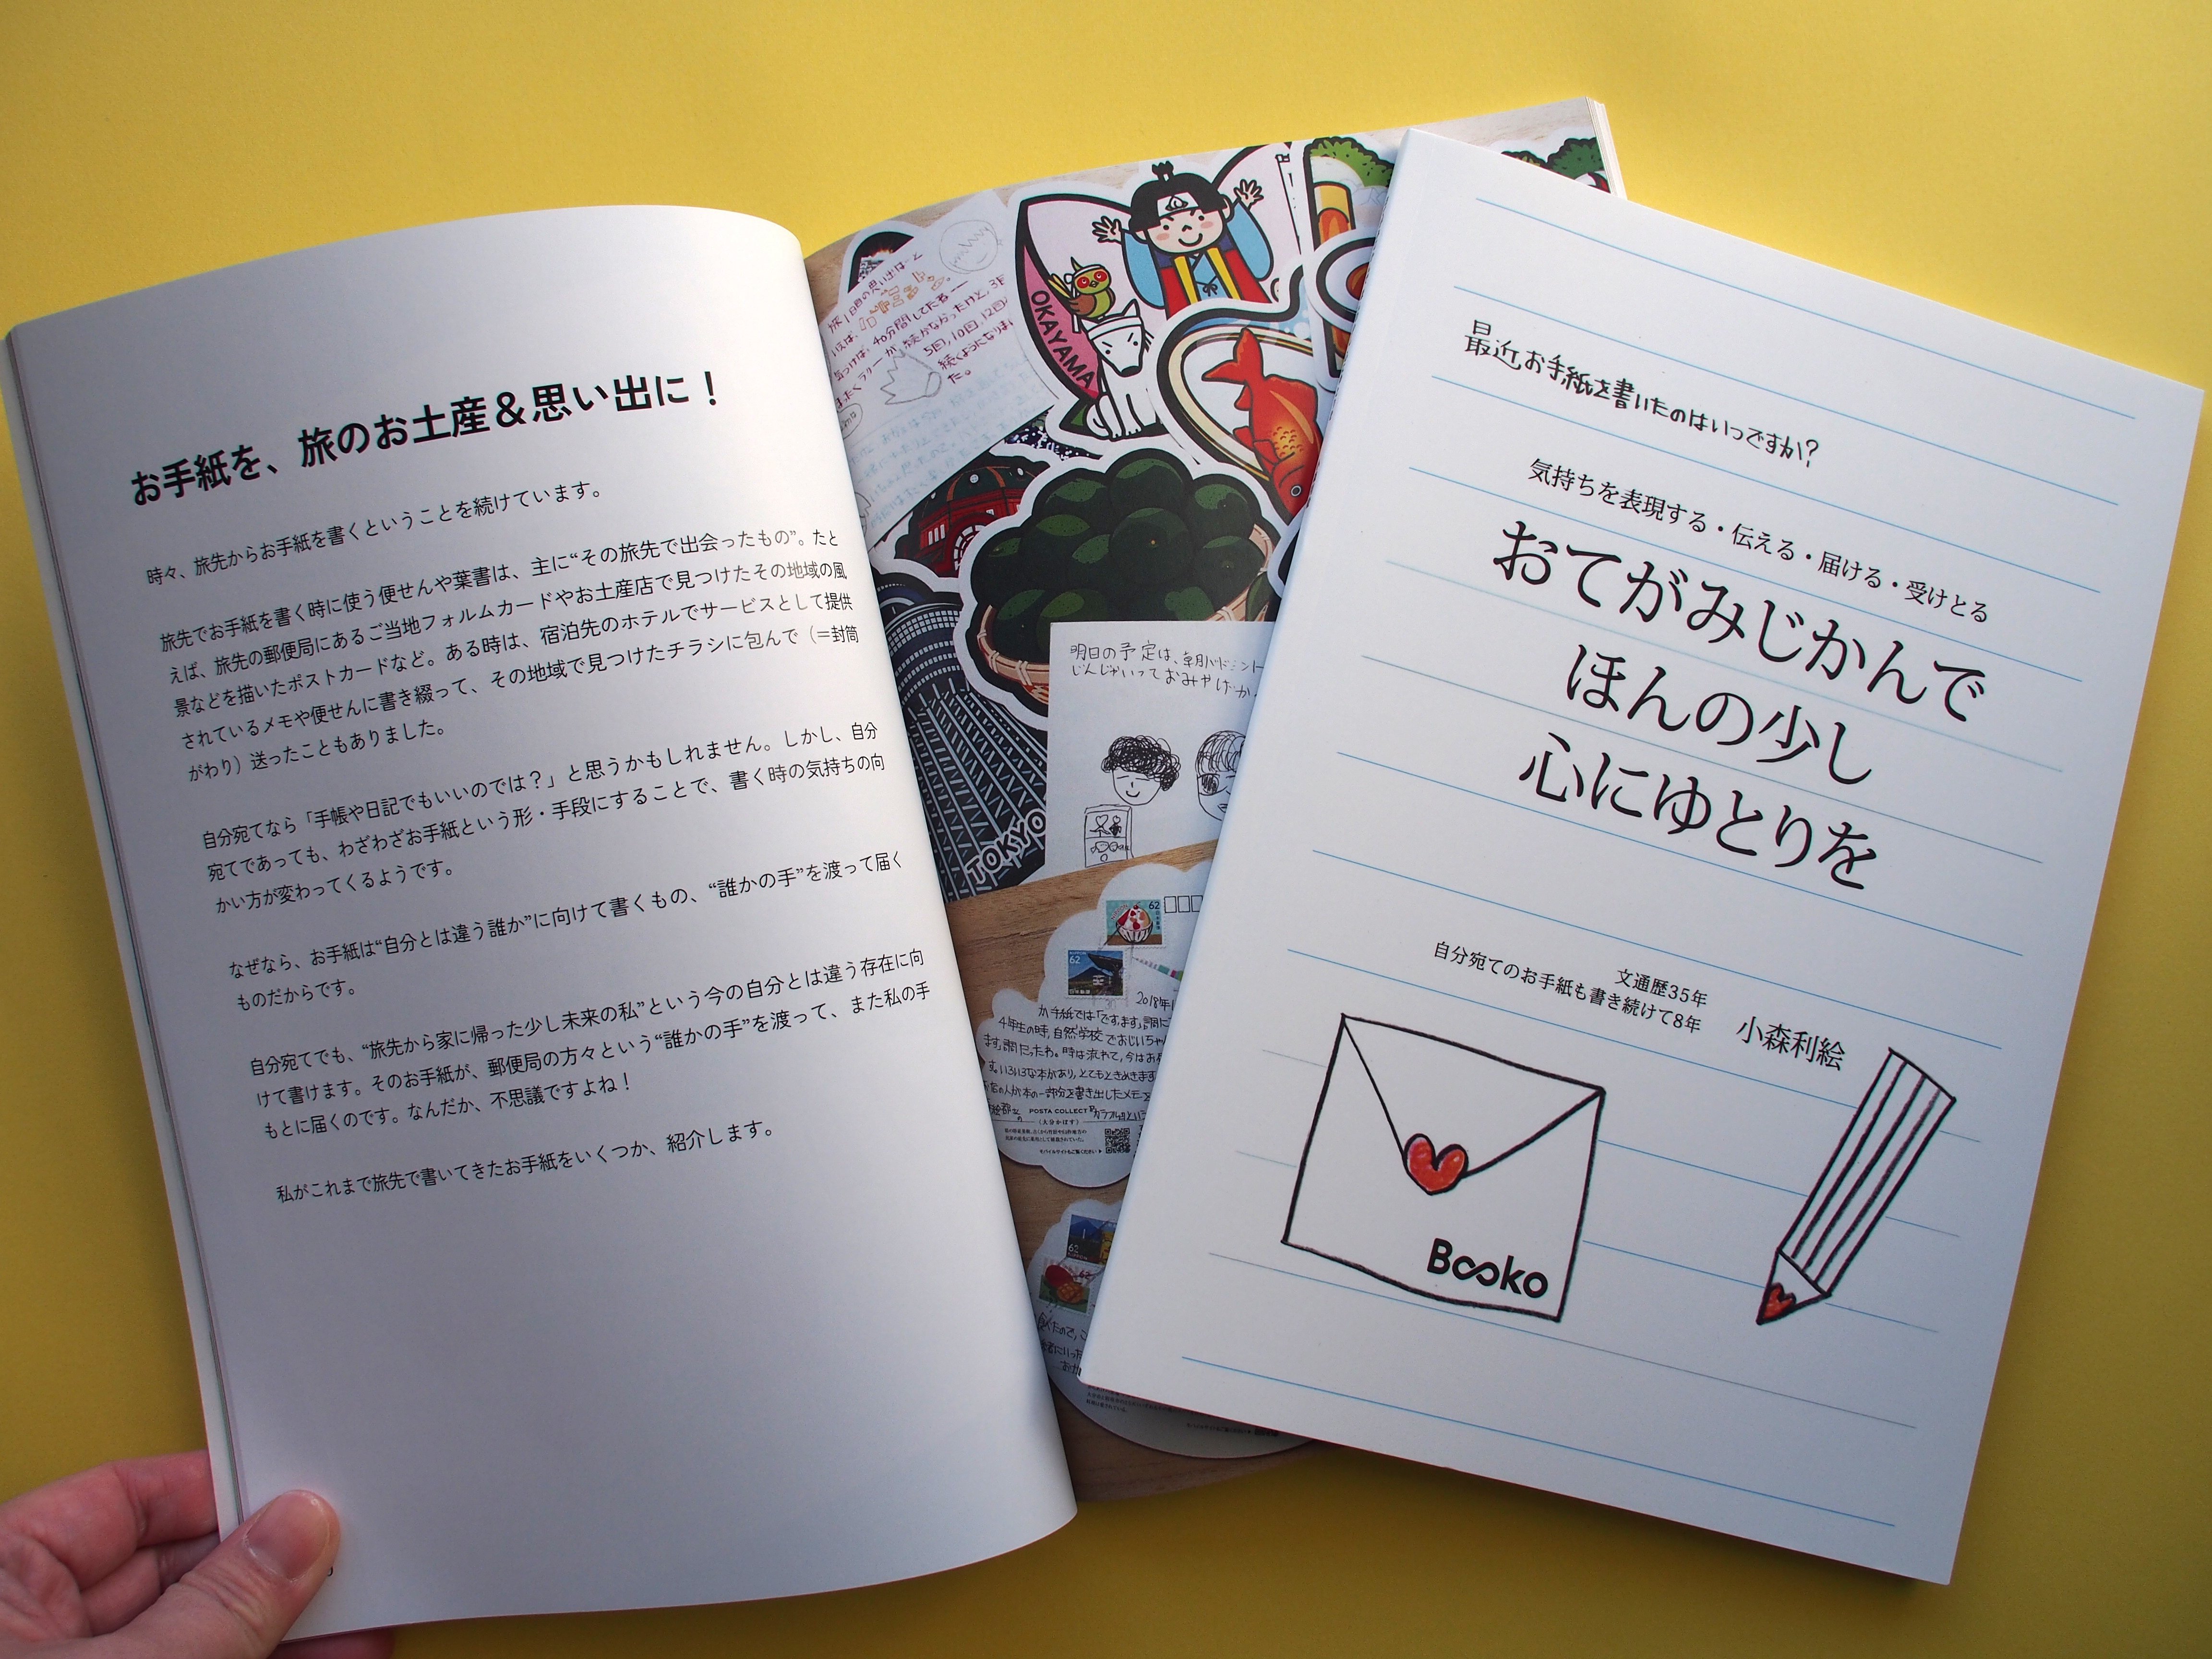 お手紙を、旅のお土産＆思い出に！
時々、旅先からお手紙を書くということを続けています。
旅先でお手紙を書く時に使う便せんや葉書は、主に“その旅先で出会ったもの”。たと
えば、旅先の郵便局にあるご当地フォルムカードやお土産店で見つけたその地域の風
景などを描いたポストカードなど。ある時は、宿泊先のホテルでサービスとして提供
されているメモや便せんに書き綴って、その地域で見つけたチラシに包んで（＝封筒
がわり）送ったこともありました。
自分宛てなら「手帳や日記でもいいのでは？」と思うかもしれません。しかし、自分
宛てであっても、わざわざお手紙という形・手段にすることで、書く時の気持ちの向
かい方が変わってくるようです。
なぜなら、お手紙は“自分とは違う誰か”に向けて書くもの、“誰かの手”を渡って届く
ものだからです。
自分宛てでも、“旅先から家に帰った少し未来の私”という今の自分とは違う存在に向
けて書けます。そのお手紙が、郵便局の方々という“誰かの手”を渡って、また私の手
もとに届くのです。なんだか、不思議ですよね！
私がこれまで旅先で書いてきたお手紙をいくつか、紹介します。
OKAYAMA
5回、10回、12回
続くようになりま
た。
明日の予定は、
TOKYO
62
62
2018年
4年生の時、自然学校でおじいちゃ
POSTA COLLECT
（大分かぼす）
モバイルサイトもご覧ください
62
62
最近お手紙を書いたのはいつですか？
気持ちを表現する・伝える・届ける・受けとる
おてがみじかんで
ほんの少し
心にゆとりを
文通歴35年
自分宛てのお手紙も書き続けて8年
小森利絵
Booko